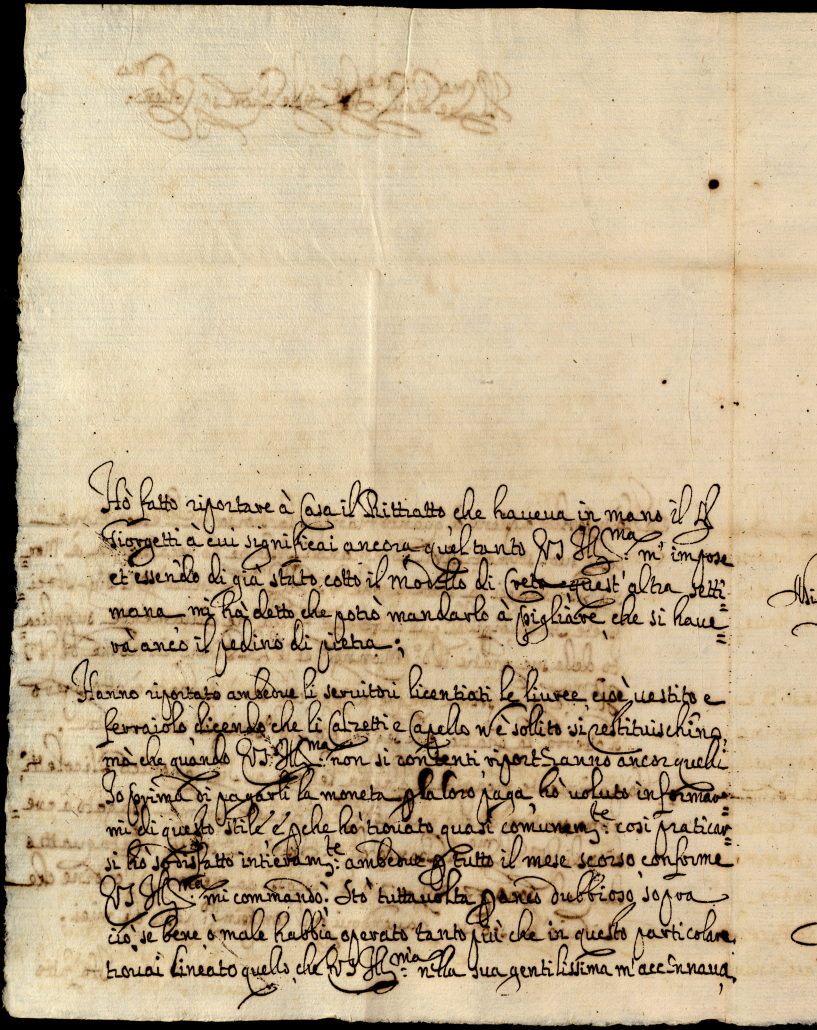 Hò fatto riportare à Casa il Rittratto che haueua in mano il Sr
Giorgetti à cui significai ancora quel tanto VS Illma: m' impose
et essendo di già stato cotto il modello di Creta quest' altra setti=
mana mi hà detto che potrò mandarlo à pigliare, che si haue=
rà anco il pedino di pietra;
Hanno riportato ambedue li seruitori licentiati le liuree, cioè uestito e
ferraiolo dicendo che li Calzetti e Capello n'è sollito si restituischino,
mà che quando VS: Illma: non si contenti riporteranno ancor quelli
Io prima di pagarli la moneta p la loro paga hò uoluto informar=
mi di questo stile e pche hò trouato quasi comunemte: così praticar=
si hò sodisfatto intieramte: ambedue p tutto il mese scorso conforme
VS Illma: mi commandò: Stò tuttauolta p anco dubbioso sopra
ciò se bene ò male habbia operato tanto più che in questo particolare
trouai lineato quello che VS Illma: nella sua gentilissima m'accennaua,